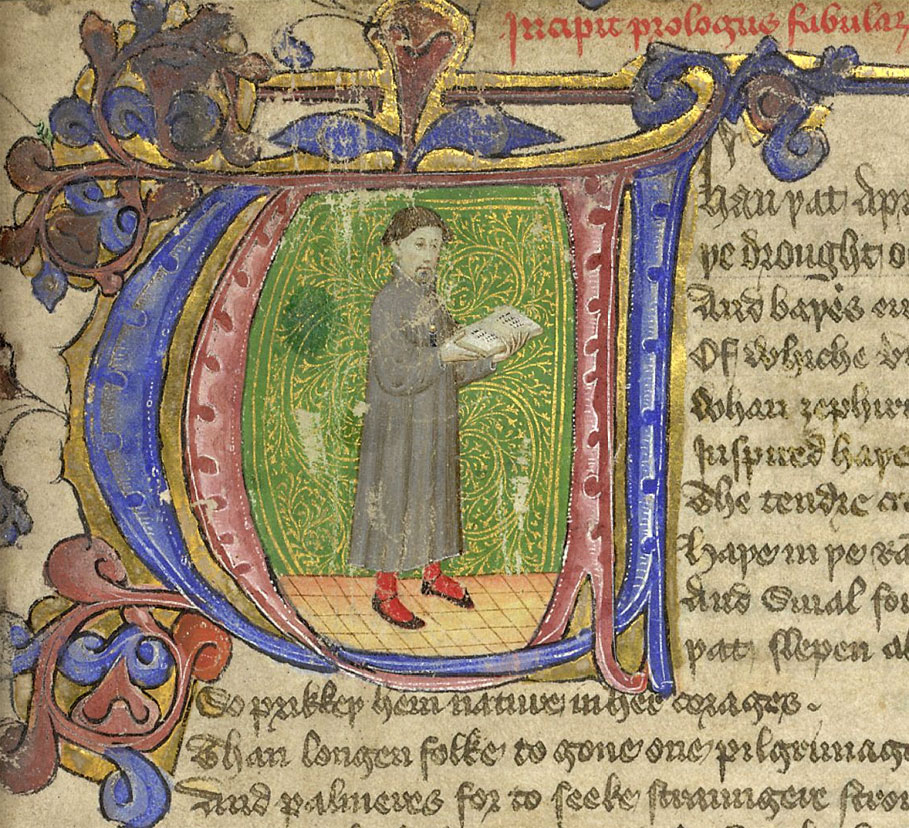 Incipit prologus fabular
Whan þat Apr
þe drought o
And baþes eu
Of whiche
Whan zephiru
Inspired haþe
The tendre cr
haþe in þe Ra
And Smal fou
þat slepen al
So prikkeþ hem nature in her corages .
Than longen folke to gone one pilgrimage
And palmeres for to seeke straungere stron